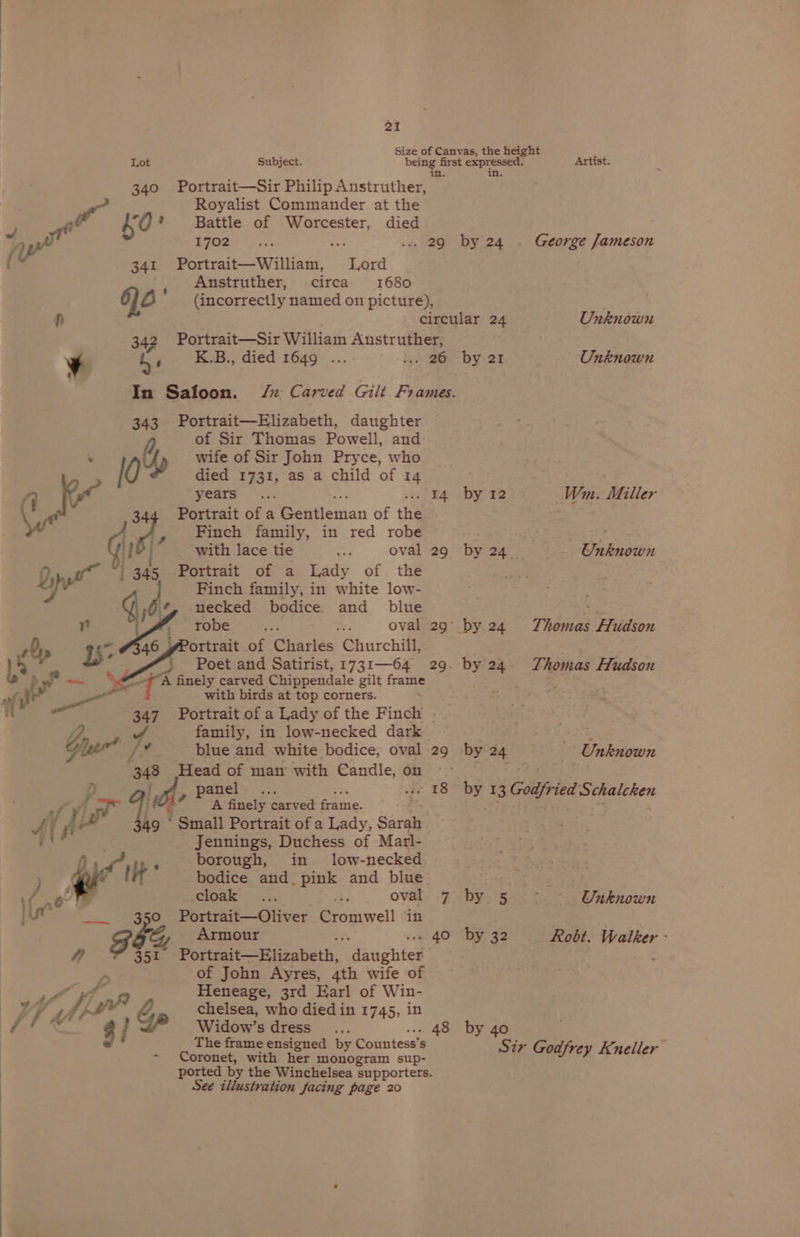 21
Size of Canvas, the height
Lot Subject. being first expressed. Artist.
in. in.
340 Portrait—Sir Philip Anstruther,
Royalist Commander at the
Battle of Worcester, died
1702 ... ... ... 29 by 24 . George Jameson
341 Portrait—William, Lord
Anstruther, circa 1680
(incorrectly named on picture),
circular 24 Unknown
342 Portrait—Sir William Anstruther,
K.B., died 1649 ... ... 26 by 21 Unknown
In Saloon. In Carved Gilt Frames.
343 Portrait—Elizabeth, daughter
of Sir Thomas Powell, and
wife of Sir John Pryce, who
died 1731, as a child of 14
years ... ... ... 14 by 12 Wm. Miller
344 Portrait of a Gentleman of the
Finch family, in red robe
with lace tie ... oval 29 by 24 Unknown
345 Portrait of a Lady of the
Finch family, in white low-
necked bodice and blue
robe ... ... oval 29 by 24 Thomas Hudson
346 Portrait of Charles Churchill,
Poet and Satirist, 1731—64 29 by 24 Thomas Hudson
A finely carved Chippendale gilt frame
with birds at top corners.
347 Portrait of a Lady of the Finch
family, in low-necked dark
blue and white bodice, oval 29 by 24 Unknown
348 Head of man with Candle, on
panel ... ... ... 18 by 13 Godfried Schalcken
A finely carved frame.
349 Small Portrait of a Lady, Sarah
Jennings, Duchess of Marl-
borough, in low-necked
bodice and pink and blue
cloak ... ... oval 7 by 5 Unknown
350 Portrait—Oliver Cromwell in
Armour ... ... 40 by 32 Robt. Walker
351 Portrait—Elizabeth, daughter
of John Ayres, 4th wife of
Heneage, 3rd Earl of Win-
chelsea, who died in 1745, in
Widow's dress ... ... 48 by 40
Sir Godfrey Kneller
The frame ensigned by Countess's
Coronet, with her monogram sup-
ported by the Winchelsea supporters.
See illustration facing page 20